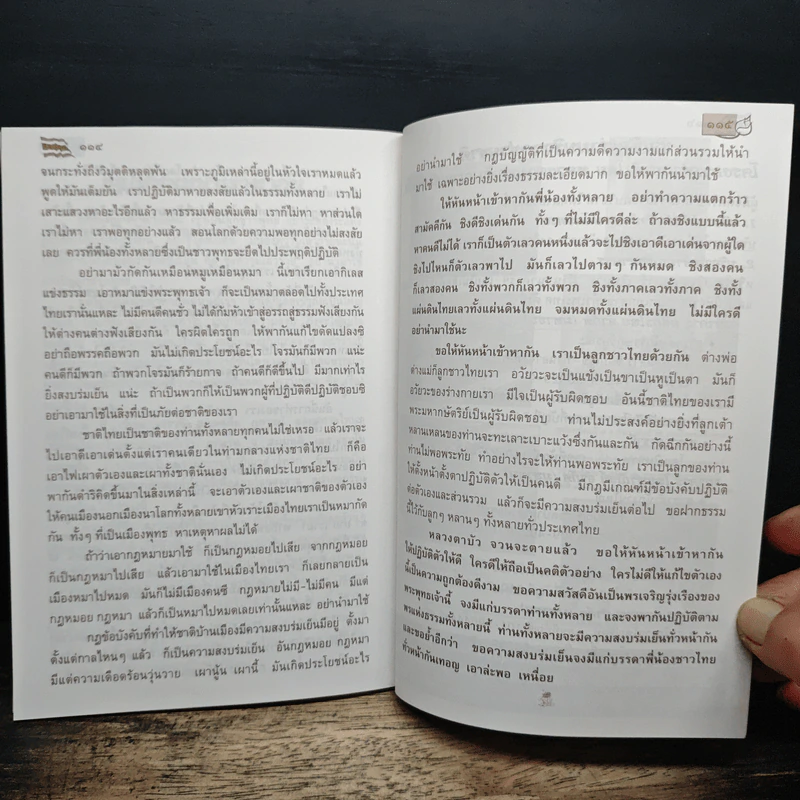 ๑๑๔
จนกระทั่งถึงวิมุตติหลุดพ้น เพราะภูมิเหล่านี้อยู่ในหัวใจเราหมดแล้ว
พูดให้มันเต็มยัน เราปฏิบัติมาหายสงสัยแล้วในธรรมทั้งหลาย เราไม่
เสาะแสวงหาอะไรอีกแล้ว หาธรรมเพื่อเพิ่มเติม เราก็ไม่หา หาส่วนใด
เราไม่หา เราพอทุกอย่างแล้ว สอนโลกด้วยความพอทุกอย่างไม่สงสัย
เลย ควรที่พี่น้องทั้งหลาย ซึ่งเป็นชาวพุทธจะยึดไปประพฤติปฏิบัติ
อย่ามามัวกัดกันเหมือนหมูเหมือนหมา นี้เขาเรียกเอากิเลส
แข่งธรรม เอาหมาแข่งพระพุทธเจ้า ก็จะเป็นหมาตลอดไปทั้งประเทศ
ไทยเรานั่นแหละ ไม่มีคนดีคนชั่ว ไม่ได้ก้มหัวเข้าสู่อรรถสู่ธรรมฟังเสียงกัน
ให้ต่างคนต่างฟังเสียงกัน ใครผิดใครถูก ให้พากันแก้ไขดัดแปลงซิ
อย่าถือพรรคถือพวก มันไม่เกิดประโยชน์อะไร โจรมันก็มีพวก แน่ะ
คนดีก็มีพวก ถ้าพวกโจรมันก็ร้ายกาจ ถ้าคนดีก็ดีขึ้นไป มีมากเท่าไร
ยิ่งสงบร่มเย็น แน่ะ ถ้าเป็นพวกก็ให้เป็นพวกผู้ที่ปฏิบัติดีปฏิบัติชอบซิ
อย่าเอามาใช้ในสิ่งที่เป็นภัยต่อชาติของเรา
ชาติไทยเป็นชาติของท่านทั้งหลายทุกคนไม่ใช่เหรอ แล้วเราจะ
ไปเอาดีเอาเด่นตั้งแต่เราคนเดียวในท่ามกลางแห่งชาติไทย ก็คือ
เอาไฟเผาตัวเองและเผาทั้งชาตินั่นเอง ไม่เกิดประโยชน์อะไร อย่า
พากันดำริคิดขึ้นมาในสิ่งเหล่านี้ จะเอาตัวเองและเผาชาติของตัวเอง
ให้คนเมืองนอกเมืองนาโลกทั้งหลายเขาหัวเราะเมืองไทยเราเป็นหมากัด
กัน ทั้งๆ ที่เป็นเมืองพุทธ หาเหตุหาผลไม่ได้
ถ้าว่าเอากฎหมายมาใช้ ก็เป็นกฎหมอยไปเสีย จากกฎหมอย
ก็เป็นกฎหมาไปเสีย แล้วเอามาใช้ในเมืองไทยเรา ก็เลยกลายเป็น
เมืองหมาไปหมด มันก็ไม่มีเมืองคนซี กฎหมายไม่มี-ไม่มีคน มีแต่
กฎหมอย กฎหมา แล้วก็เป็นหมาไปหมดเลยเท่านั้นแหละ อย่านำมาใช้
กฎข้อบังคับที่ทำให้ชาติบ้านเมืองมีความสงบร่มเย็นมีอยู่ ตั้งมา
ตั้งแต่กาลไหนๆ แล้ว ก็เป็นความสงบร่มเย็น อันกฎหมอย กฎหมา
มีแต่ความเดือดร้อนวุ่นวาย เผานู้น เผานี้ มันเกิดประโยชน์อะไร
๑๑๕
อย่านำมาใช้ กฎบัญญัติที่เป็นความดีความงามแก่ส่วนรวมให้นำ
มาใช้ เฉพาะอย่างยิ่งเรื่องธรรมละเอียดมาก ขอให้พากันนำมาใช้
ให้หันหน้าเข้าหากันพี่น้องทั้งหลาย อย่าทำความแตกร้าว
สามัคคีกัน ชิงดีชิงเด่นกัน ทั้งๆ ที่ไม่มีใครดีล่ะ ถ้าลงชิงแบบนี้แล้ว
หาคนดีไม่ได้ เราก็เป็นตัวเลวคนหนึ่งแล้วจะไปชิงเอาดีเอาเด่นจากผู้ใด
ชิงไปไหนก็ตัวเลวพาไป มันก็เลวไปตามๆ กันหมด ชิงสองคน
ก็เลวสองคน ชิงทั้งพวกก็เลวทั้งพวก ชิงทั้งภาคเลวทั้งภาค ชิงทั้ง
แผ่นดินไทยเลวทั้งแผ่นดินไทย จมหมดทั้งแผ่นดินไทย ไม่มีใครดี
อย่านำมาใช้นะ
ขอให้หันหน้าเข้าหากัน เราเป็นลูกชาวไทยด้วยกัน ต่างพ่อ
ต่างแม่ก็ลูกชาวไทยเรา อวัยวะจะเป็นแข้งเป็นขาเป็นหูเป็นตา มันก็
อวัยวะของร่างกายเรา มีใจเป็นผู้รับผิดชอบ อันนี้ชาติไทยของเรามี
พระมหากษัตริย์เป็นผู้รับผิดชอบ ท่านไม่ประสงค์อย่างยิ่งที่ลูกเต้า
หลานเหลนของท่านจะทะเลาะเบาะแว้งซึ่งกันและกัน กัดฉีกกันอย่างนี้
ท่านไม่พอพระทัย ทำอย่างไรจะให้ท่านพอพระทัย เราเป็นลูกของท่าน
ให้ตั้งหน้าตั้งตาปฏิบัติตัวให้เป็นคนดี มีกฎมีเกณฑ์มีข้อบังคับปฏิบัติ
ต่อตัวเองและส่วนรวม แล้วก็จะมีความสงบร่มเย็นต่อไป ขอฝากธรรม
นี้ไว้กับลูกๆ หลานๆ ทั้งหลายทั่วประเทศไทย
หลวงตาบัว จวนจะตายแล้ว ขอให้หันหน้าเข้าหากัน
ให้ปฏิบัติตัวให้ดี ใครดีให้ถือเป็นคติตัวอย่าง ใครไม่ดีให้แก้ไขตัวเอง
นี้เป็นความถูกต้องดีงาม ขอความสวัสดีอันเป็นพรเจริญรุ่งเรืองของ
พระพุทธเจ้านี้ จงมีแก่บรรดาท่านทั้งหลาย และจงพากันปฏิบัติตาม
พรแห่งธรรมทั้งหลายนี้ ท่านทั้งหลายจะมีความสงบร่มเย็นทั่วหน้ากัน
และขอย้ำอีกว่า ขอความสงบร่มเย็นจงมีแก่บรรดาพี่น้องชาวไทย
ทั่วหน้ากันเทอญ เอาล่ะพอ เหนื่อย